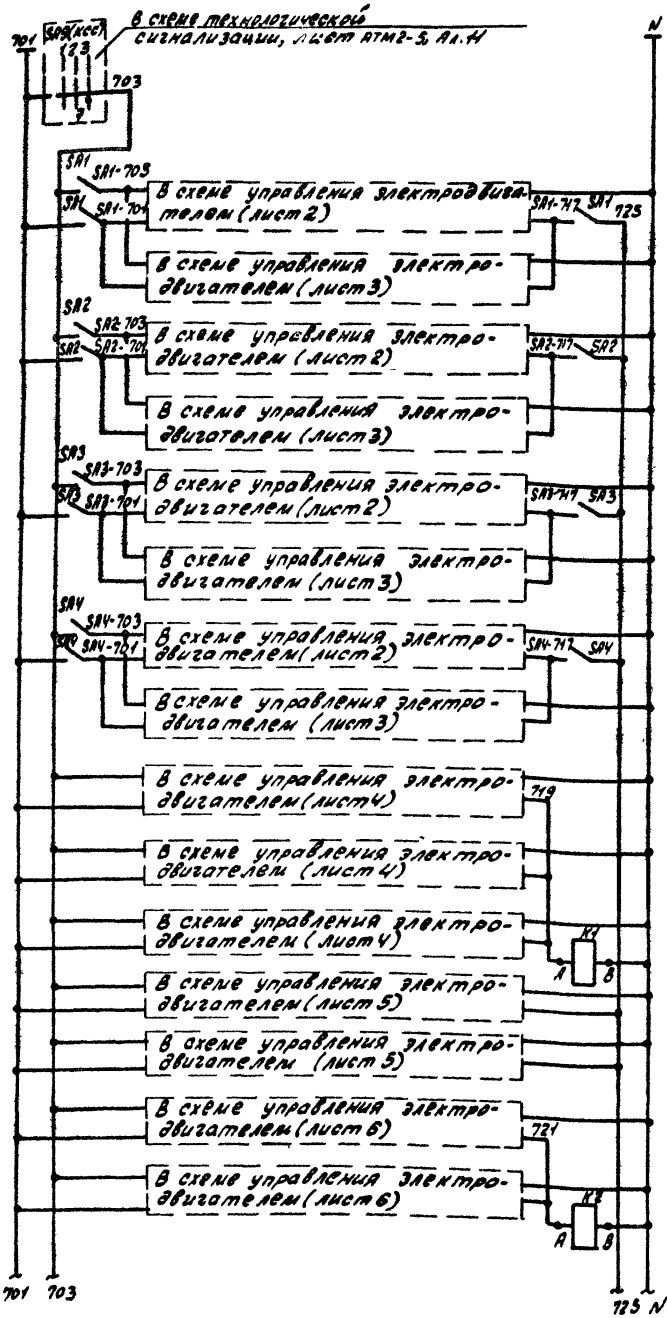 в схеме технологической
сигнализации, лист АТМ2-5, Ал.11
701 SA9(КСС) N
1 2 3
703
SA1
SA1-703
В схеме управления электродвига-
телем (лист 2)
SA1 SA1-701 SA1-717 SA1 725
В схеме управления электро-
двигателем (лист 3)
SA2
SA2-703
В схеме управления электро-
двигателем (лист 2)
SA2 SA2-701 SA2-717 SA2
В схеме управления электро-
двигателем (лист 3)
SA3
SA3-703
В схеме управления электро-
двигателем (лист 2)
SA3 SA3-701 SA3-717 SA3
В схеме управления электро-
двигателем (лист 3)
SA4
SA4-703
В схеме управления электро-
двигателем (лист 2)
SA4 SA4-701 SA4-717 SA4
В схеме управления электро-
двигателем (лист 3)
В схеме управления электро-
двигателем (лист 4)
719
В схеме управления электро-
двигателем (лист 4)
В схеме управления электро-
двигателем (лист 4)
K1
A B
В схеме управления электро-
двигателем (лист 5)
В схеме управления электро-
двигателем (лист 5)
В схеме управления электро-
двигателем (лист 6)
721
В схеме управления электро-
двигателем (лист 6)
K2
A B
701 703 725 N